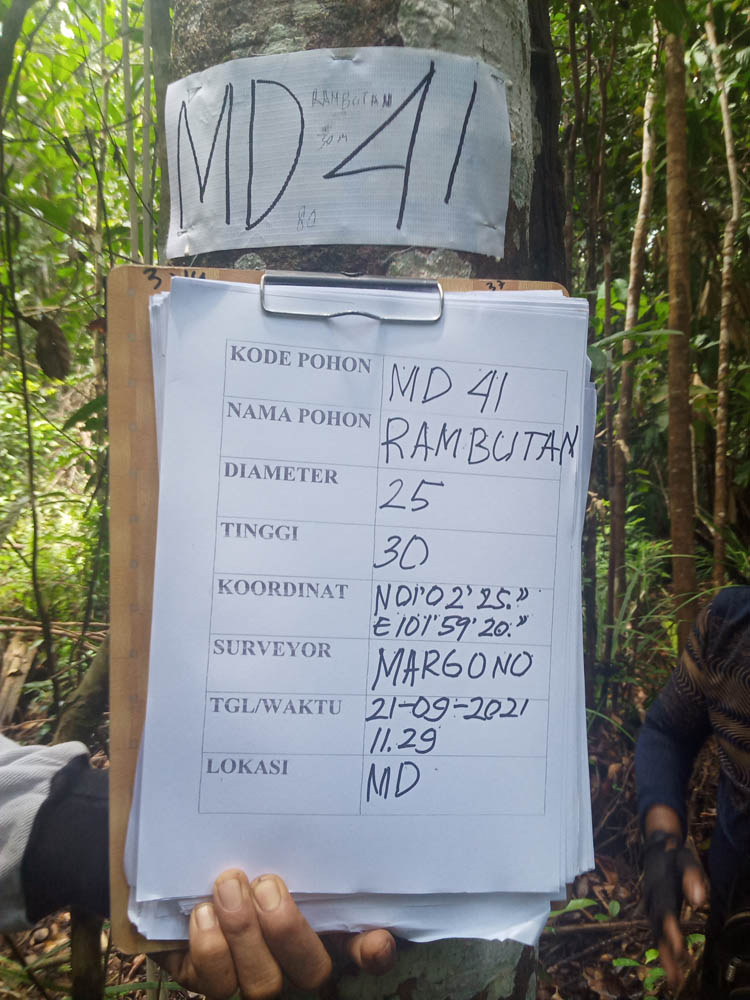 MD 41
RAMBUTAN
30 M
80
KODE POHON MD 41
NAMA POHON RAMBUTAN
DIAMETER 25
TINGGI 30
KOORDINAT N 01'02'25."
E 101'59'20."
SURVEYOR MARGONO
TGL/WAKTU 21-09-2021
11.29
LOKASI MD